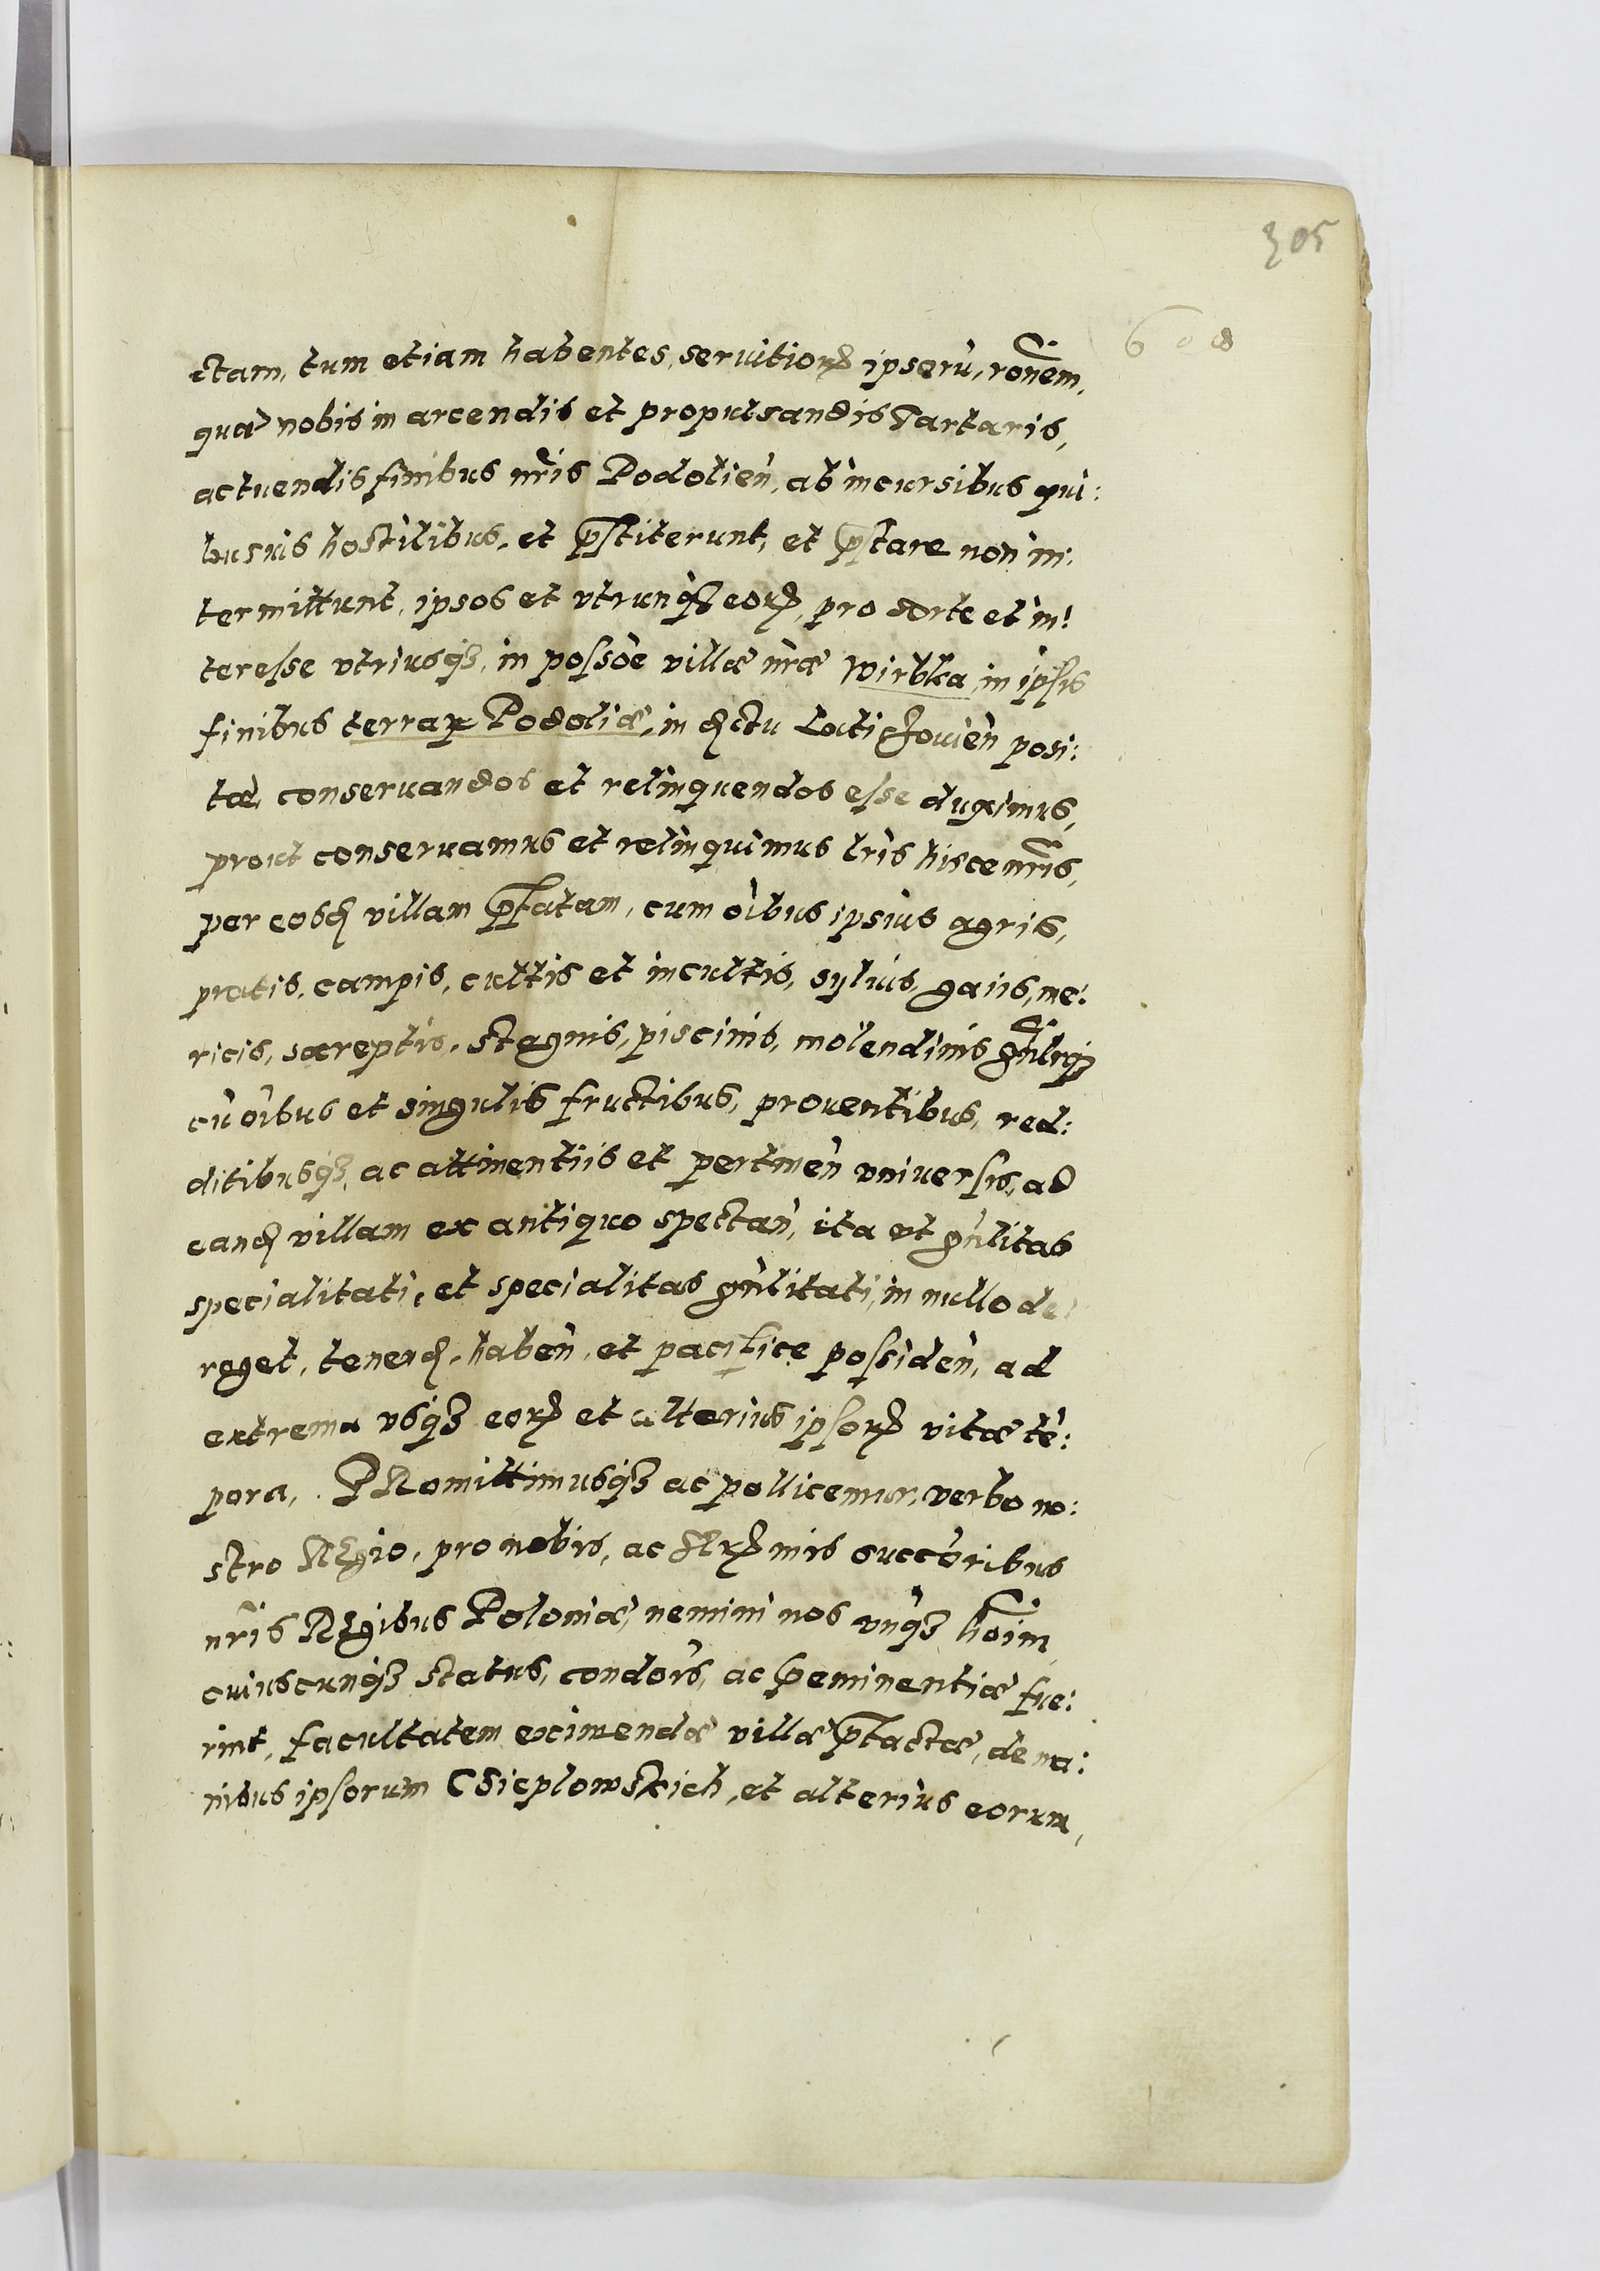 305
608
ctam, tum etiam habentes, seruitiorꝫ ipserù, rõnem,
quæ nobis in arcendis et propulsandis Tartaris,
ac tuendis finibus nr̃is Podolien̄, ab incursibus qui:
busuis hostilibus, et p̄stiterunt, et p̄stare non in:
termittunt, ipsos et vtrunqꝫ eorꝫ, pro sorte et in:
teresse vtriusqꝫ, in possōe villæ nr̄æ Wirbka, in ipsis
finibus terrar Podoliæ, in dictu Laticzouien̄ posi:
tæ, conseruandos et relinquendos esse duximus,
prout conseruamus et relinquimus lr̄is hisce nr̃is,
per eosd villam p̄fatam, cum oībus ipsius agris,
pratis, campis, cultis et incultis, syluis, gaiis, me:
ricis, særeptis, stagnis, piscinis, molendinis gn̄lrqꝫ
cū oībus et singulis fructibus, prouentibus, red:
ditibusqꝫ, ac attinentiis et pertinen̄ vniuersis, ad
eand villam ex antiquo spectan̄, ita vt gn̄litas
specialitati, et specialitas gn̄litati, in nullo de:
roget, tenend, haben̄, et pacifice possiden̄, ad
extrema vsqꝫ eorꝫ et alterius ipsorꝫ vitæ tē:
pora, PRomittimusqꝫ ac pollicemur, verbo no:
stro Regio, pro nobis, ac Srꝫmis succōribus
nr̃is Regibus Poloniæ, nemini nos vnqꝫ hoīm,
cuiuscunqꝫ status, condōis, ac p̄eminentiæ fue:
rint, facultatem eximendæ villæ p̄tactæ, de ma:
nibus ipsorum Csieplowskich, et alterius eorum,